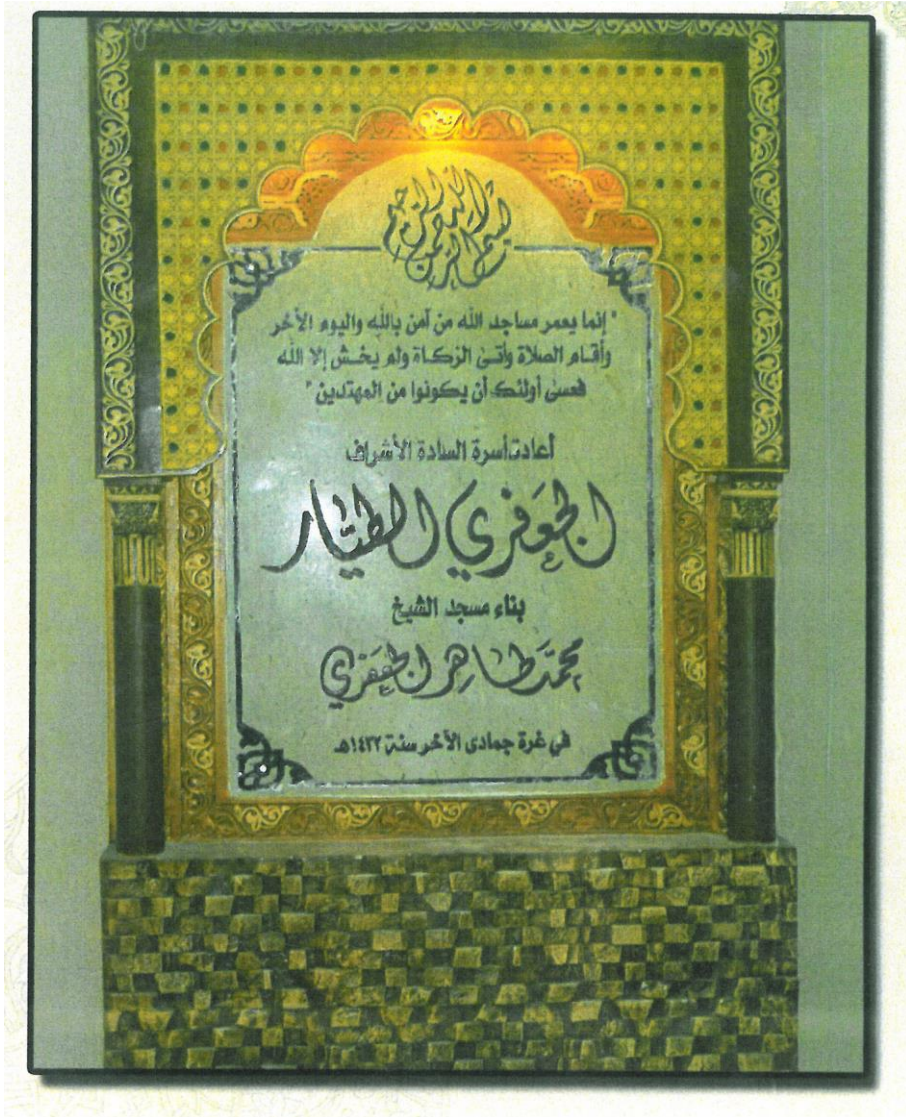 بسم الله الرحمن الرحيم
" إنما يعمر مساجد الله من آمن بالله واليوم الآخر
وأقام الصلاة وأتى الزكاة ولم يخش إلا الله
فعسى أولئك أن يكونوا من المهتدين "
أعادت أسرة السادة الأشراف
الجعفري الطيار
بناء مسجد الشيخ
محمد طاهر الجعفري
في غرة جمادى الآخر سنة ١٤٣٢هـ